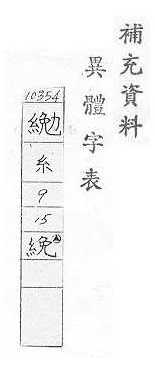 補充資料
異體字表
10354
糸
9
15
絻